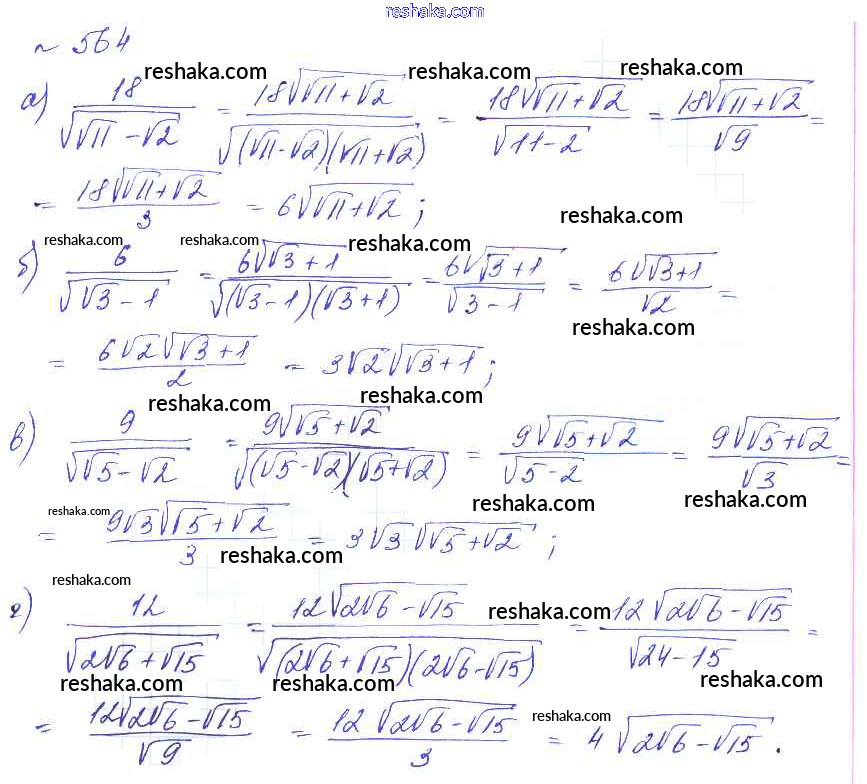 reshaka.com
~ 564
reshaka.com reshaka.com reshaka.com
а) 18/√(√11 − √2) = 18√(√11 + √2)/√((√11 − √2)(√11 + √2)) = 18√(√11 + √2)/√(11 − 2) = 18√(√11 + √2)/√9 =
= 18√(√11 + √2)/3 = 6√(√11 + √2);
reshaka.com
reshaka.com reshaka.com reshaka.com
б) 6/√(√3 − 1) = 6√(√3 + 1)/√((√3 − 1)(√3 + 1)) = 6√(√3 + 1)/√(3 − 1) = 6√(√3 + 1)/√2 =
reshaka.com
= 6√2√(√3 + 1)/2 = 3√2√(√3 + 1);
reshaka.com reshaka.com
в) 9/√(√5 − √2) = 9√(√5 + √2)/√((√5 − √2)(√5 + √2)) = 9√(√5 + √2)/√(5 − 2) = 9√(√5 + √2)/√3 =
reshaka.com reshaka.com reshaka.com
= 9√3√(√5 + √2)/3 = 3√3√(√5 + √2);
reshaka.com
reshaka.com reshaka.com
г) 12/√(2√6 + √15) = 12√(2√6 − √15)/√((2√6 + √15)(2√6 − √15)) = 12√(2√6 − √15)/√(24 − 15) =
reshaka.com reshaka.com reshaka.com
= 12√(2√6 − √15)/√9 = 12√(2√6 − √15)/3 = 4√(2√6 − √15).
reshaka.com
reshaka.com